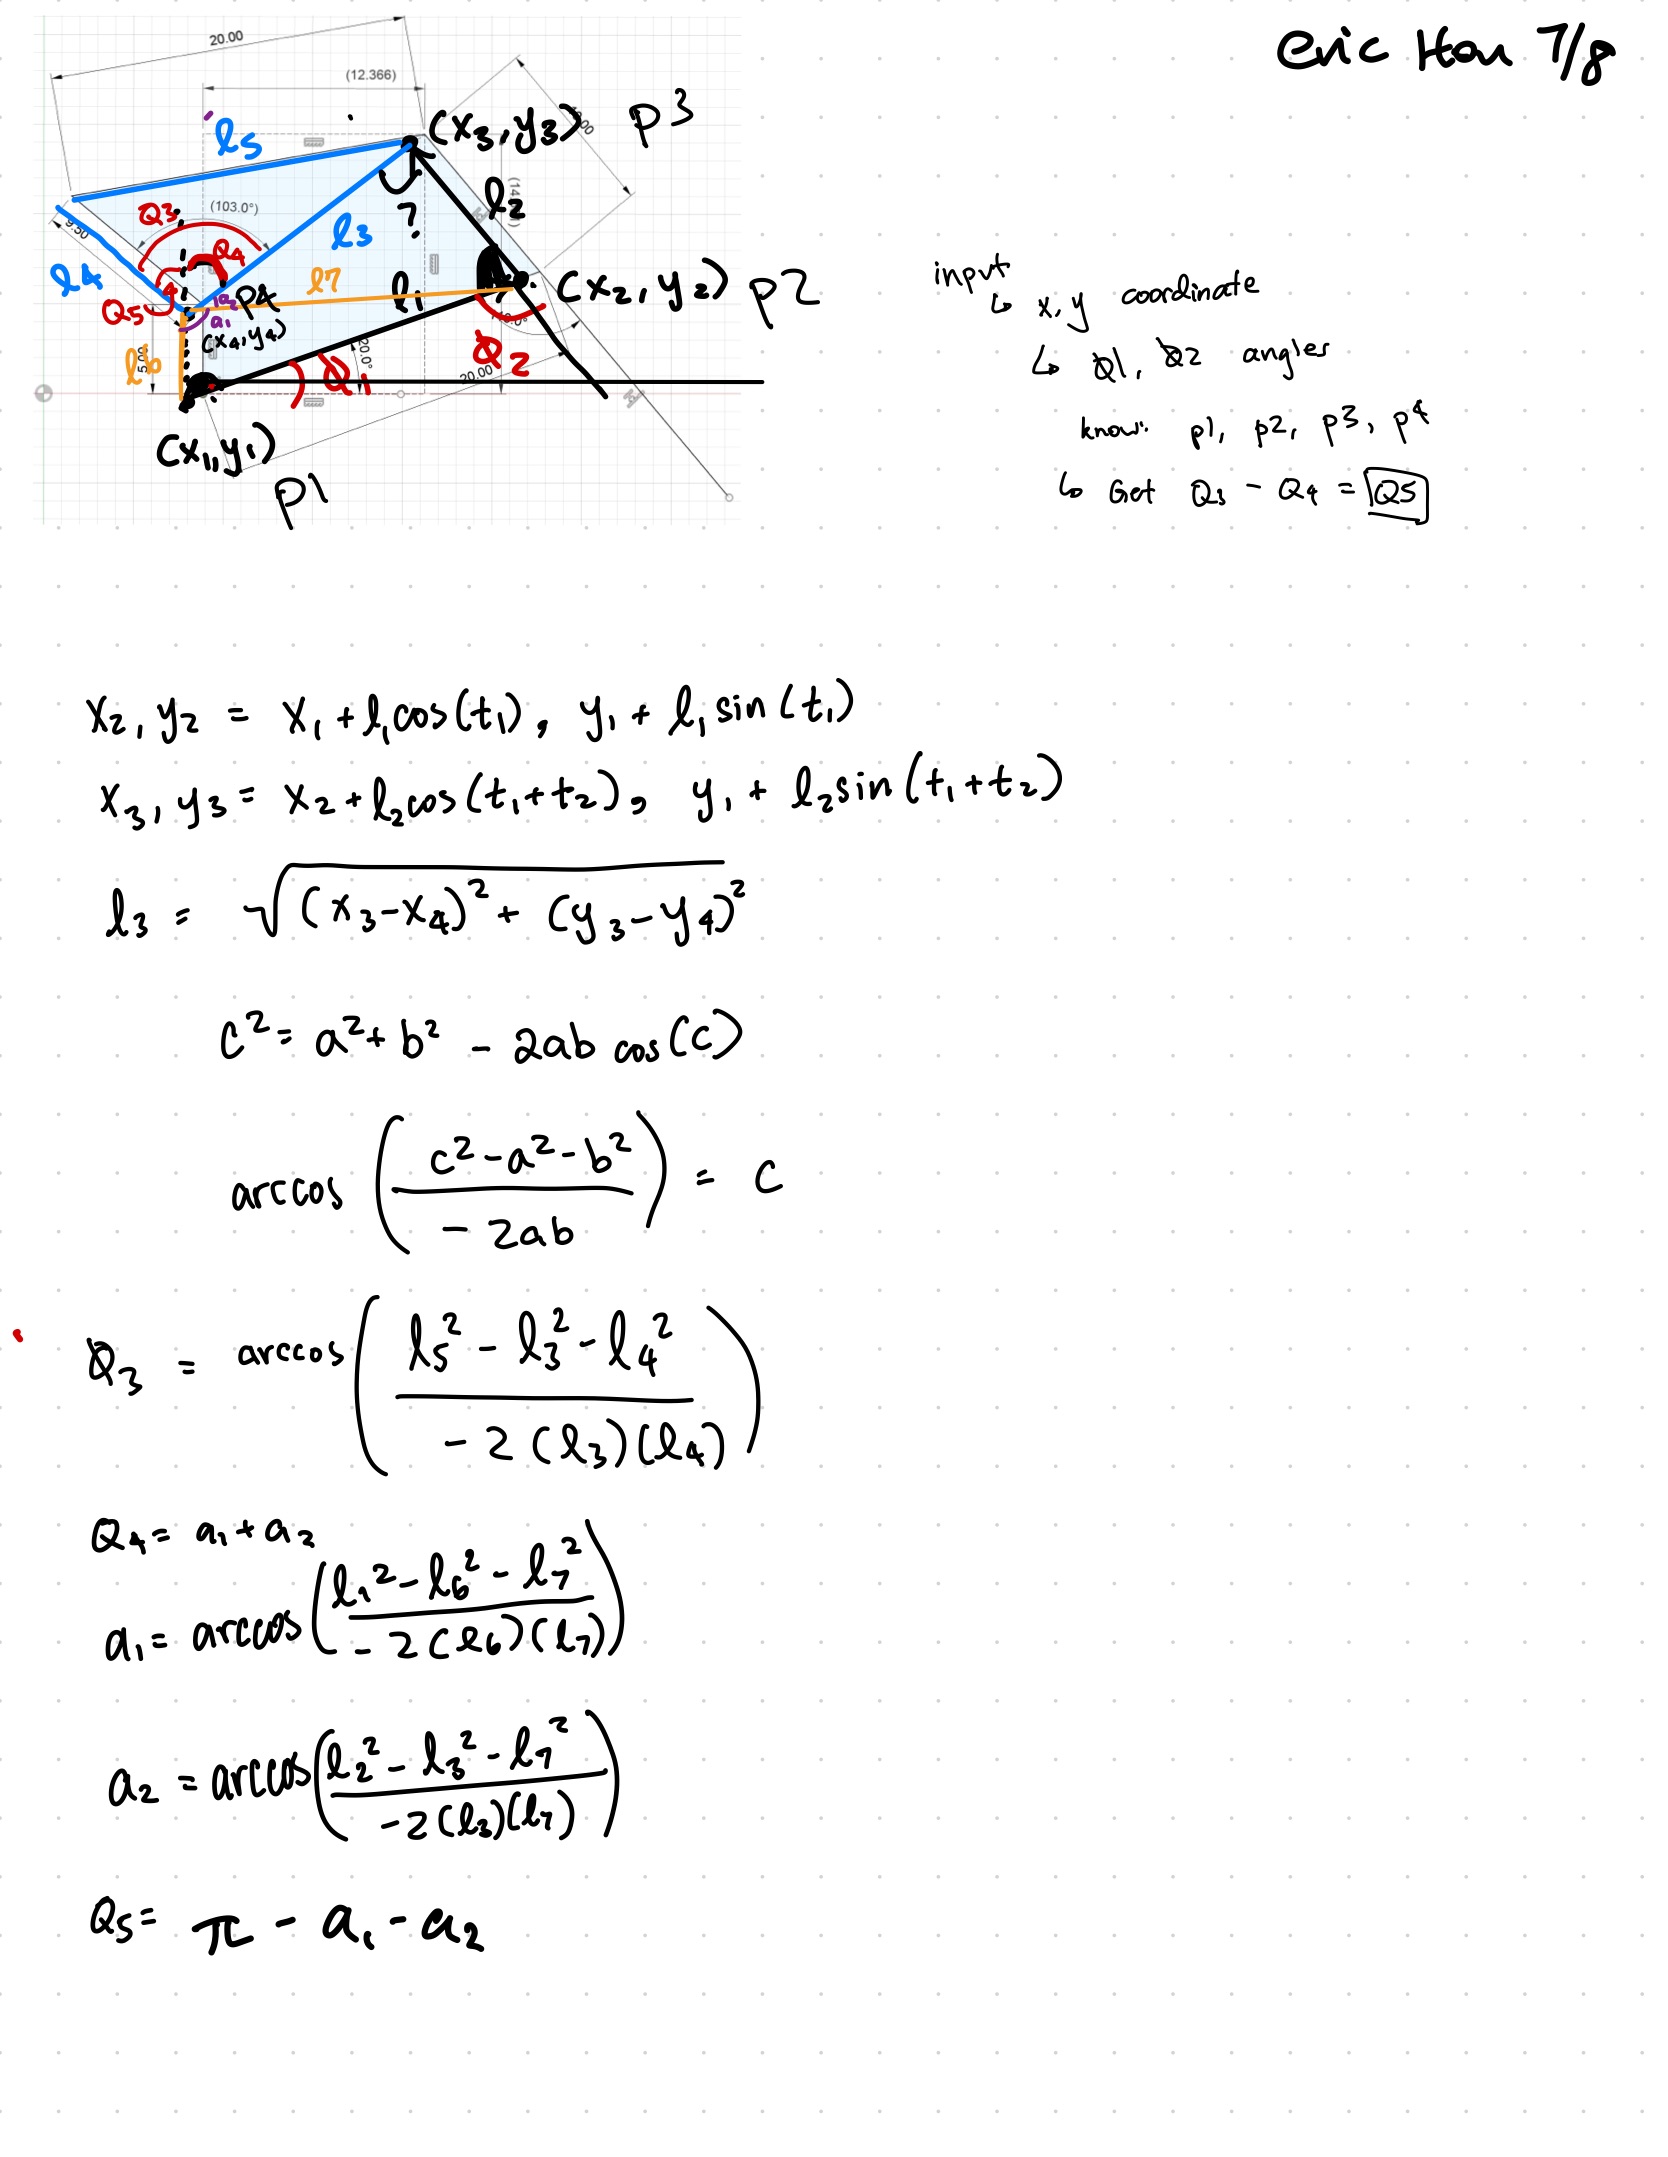 eric Han 7/8
20.00
(12.366)
(x3, y3) p3
l5
l2
Q3
(103.0°)
?
l3
9.50
Q4
l4
l7
l1
(x2, y2) p2
Q5
p4
a2
a1
(x4, y4)
l6
5.00
20.0°
Φ1
Φ2
20.00
(x1, y1)
p1
input
↳ x, y coordinate
↳ Φ1, Φ2 angles
know: p1, p2, p3, p4
↳ Get Q3 - Q4 = Q5
x2, y2 = x1 + l1cos(t1), y1 + l1 sin(t1)
x3, y3 = x2 + l2cos(t1+t2), y1 + l2sin(t1+t2)
l3 = √(x3-x4)² + (y3-y4)²
c² = a² + b² - 2ab cos(C)
arccos (c² - a² - b² / -2ab) = C
Φ3 = arccos (l5² - l3² - l4² / -2(l3)(l4))
Q4 = a1 + a2
a1 = arccos (l1² - l6² - l7² / -2(l6)(l7))
a2 = arccos (l2² - l3² - l7² / -2(l3)(l7))
Q5 = π - a1 - a2